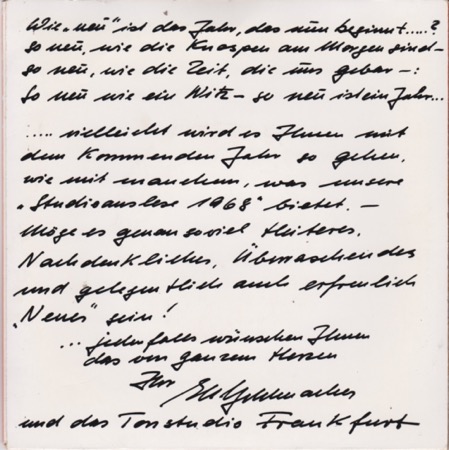 Wie „neu“ ist das Jahr, das nun beginnt.....?
so neu, wie die Knospen am Morgen sind -
so neu, wie die Zeit, die uns gebar -:
So neu wie ein Witz - so neu ist ein Jahr...
..... vielleicht wird es Ihnen mit
dem Kommenden Jahr so gehen,
wie mit manchem, was unsere
„Studioauslese 1968“ bietet. -
Möge es genau soviel Heiteres,
Nachdenkliches, Überraschendes
und gelegentlich auch erfreulich
„Neues“ sein!
... jedenfalls wünschen Ihnen
das von ganzem Herzen
Ihr
und das Tonstudio Frankfurt